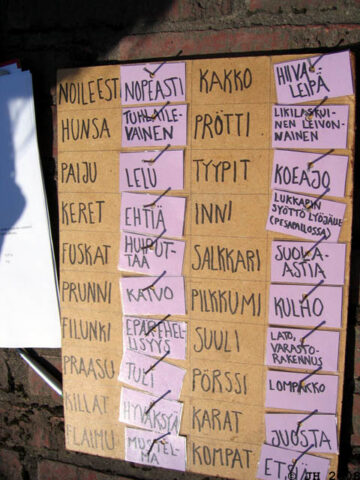 NOILEEST
NOPEASTI
KAKKO
HIIVA-
LEIPÄ
HUNSA
TUHLAILE-
VAINEN
PRÖTTI
LIKILASKUI-
NEN LEIVON-
NAINEN
PAIJU
LELU
TYYPIT
KOEAJO
KERET
EHTIÄ
INNI
LUKKARIN
SYÖTTÖ LYÖJÄLLE
(PESÄPALLOSSA)
FUSKAT
HUIPUT-
TAA
SALKKARI
SUOLA-
ASTIA
PRUNNI
KAIVO
PILKKUMI
KULHO
FILUNKI
EPÄREHEL-
LISYYS
SUULI
LATO,
VARASTO-
RAKENNUS
PRAASU
TULI
PÖRSSI
LOMPAKKO
KILLAT
HYVÄKSYÄ
KARAT
JUOSTA
FLAIMU
MUSTEL-
MA
KOMPAT
ETSIÄ